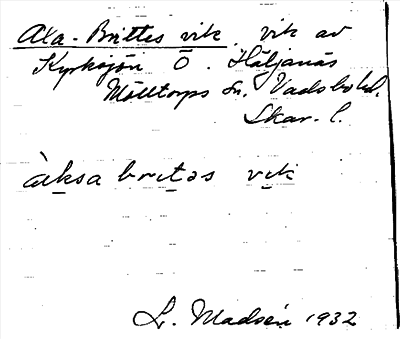 Axa-Brittes vik, vik av
Kyrksjön Ö. Häljanäs
Mölltorps sn. Vadsbo hd.
Skar. l.
àksa britəs vik
L. Madsén 1932